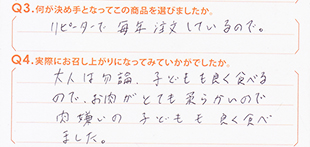 Q3.何が決め手となってこの商品を選びましたか。
リピーターで毎年注文しているので。
Q4.実際にお召し上がりになってみていかがでしたか。
大人は勿論、子どもも良く食べる
ので、お肉がとても柔らかいので
肉嫌いの子どもも良く食べ
ました。